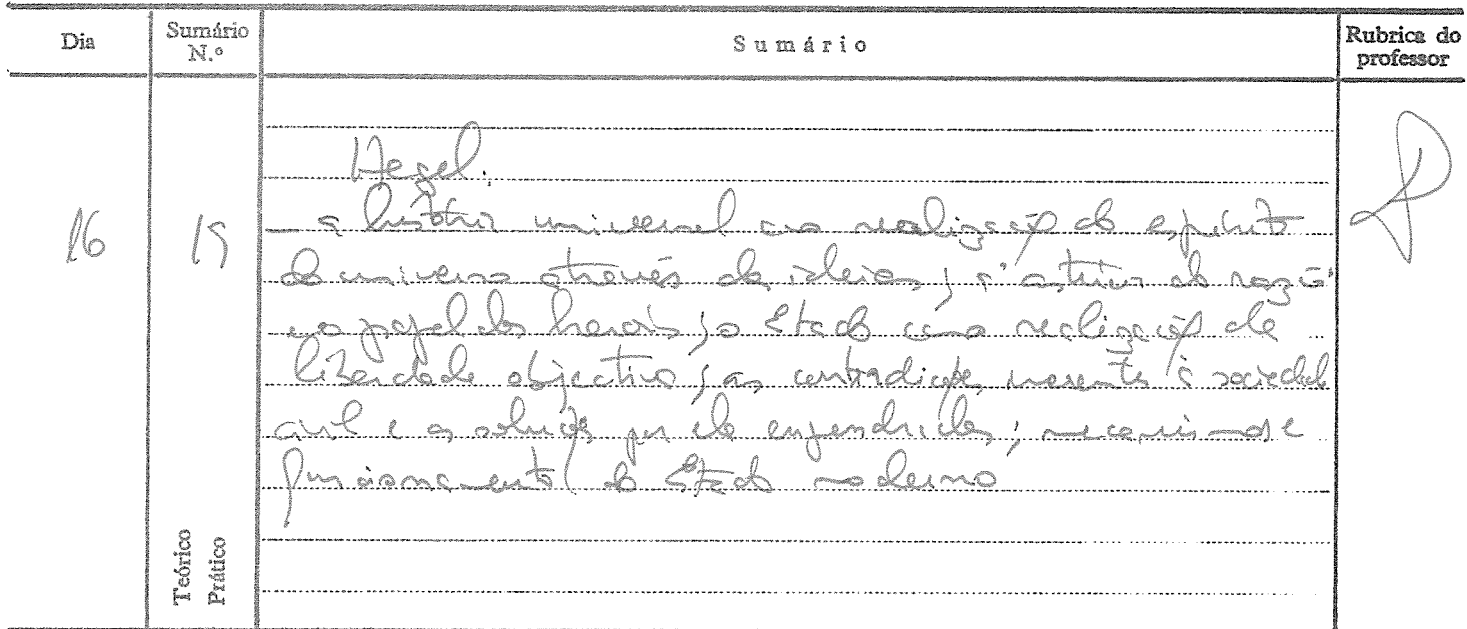 Dia
Sumário N.º
Sumário
Rubrica do professor
16
19
Hegel.
– a história universal como realização do espírito
do universo através das ideias; a "astúcia da razão"
e o papel dos heróis; o Estado como realização da
liberdade objectiva; as contradições inerentes à sociedade
civil e as soluções por ela engendradas; mecanismo de
funcionamento do Estado moderno
Teórico
Prático